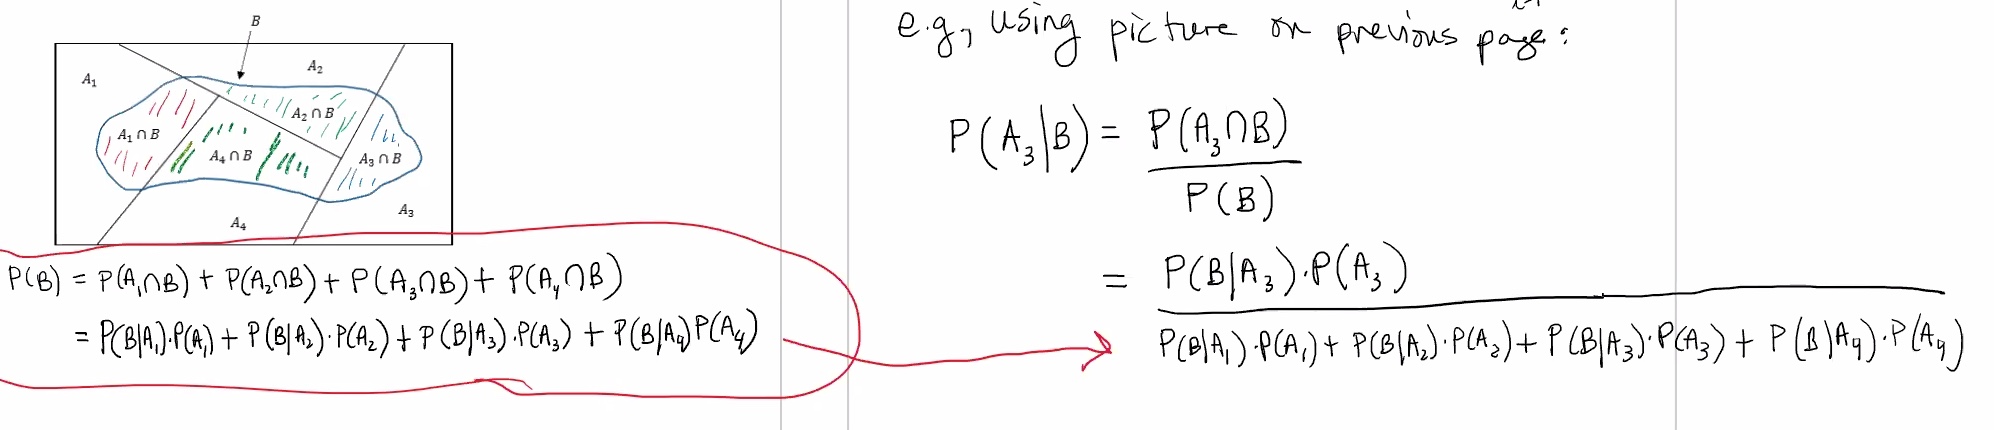 B
A₁
A₂
A₂ ∩ B
A₁ ∩ B
A₄ ∩ B
A₃ ∩ B
A₃
A₄
P(B) = P(A₁∩B) + P(A₂∩B) + P(A₃∩B) + P(A₄∩B)
= P(B|A₁)·P(A₁) + P(B|A₂)·P(A₂) + P(B|A₃)·P(A₃) + P(B|A₄)P(A₄)
e.g, using picture on previous page:
P(A₃|B) = P(A₃∩B)
P(B)
= P(B|A₃)·P(A₃)
P(B|A₁)·P(A₁) + P(B|A₂)·P(A₂) + P(B|A₃)·P(A₃) + P(B|A₄)·P(A₄)